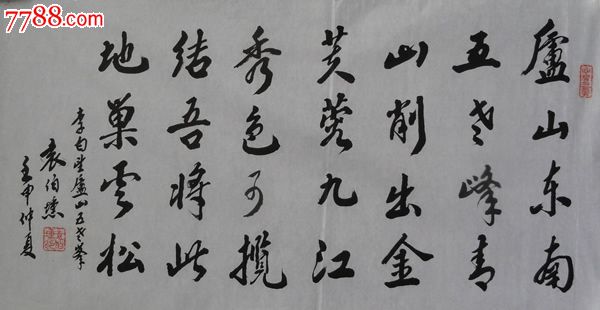 7788.com
盧山东南
五老峰青
山削出金
芙蓉九江
秀色可攬
結吾将此
地巢云松
李白望盧山五老峯
袁伯
壬申仲夏